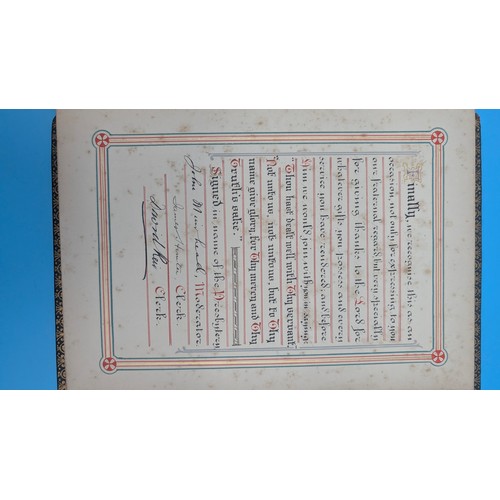 Finally, we recognise this as an
occasion, not only for expressing to you
our fraternal regard but very specially
for giving thanks to the Lord for
whatever gifts you possess and every
service you have rendered, and before
Him we would join with you in saying:
"Thou hast dealt well with Thy servant."
"Not unto us, not unto us, but to Thy
name give glory, for Thy mercy and Thy
Truth's sake."
Signed in name of the Presbytery,
John Muirhead, Moderator.
Clerk.
Clerk.